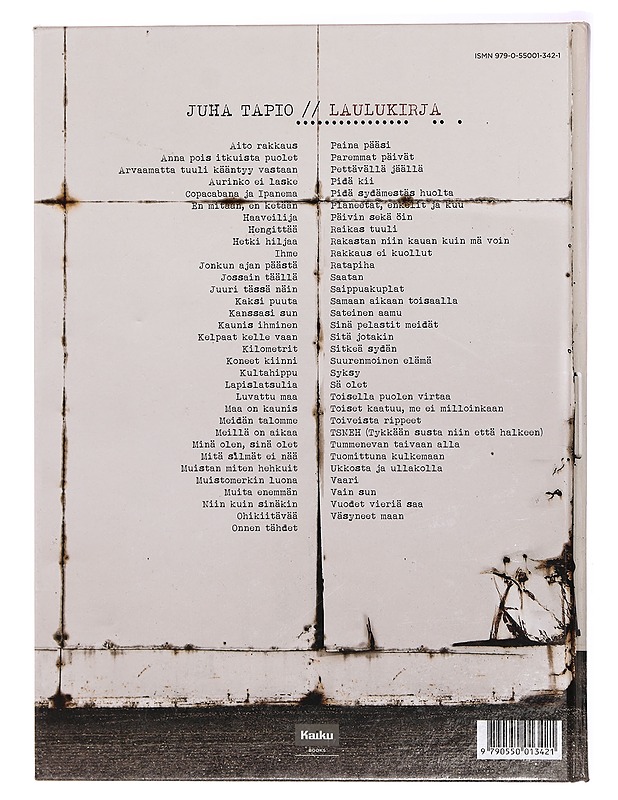 ISMN 979-0-55001-342-1
JUHA TAPIO // LAULUKIRJA
Aito rakkaus
Anna pois itkuista puolet
Arvaamatta tuuli kääntyy vastaan
Aurinko ei laske
Copacabana ja Ipanema
En mitään, en ketään
Haaveilija
Hengittää
Hetki hiljaa
Ihme
Jonkun ajan päästä
Jossain täällä
Juuri tässä näin
Kaksi puuta
Kanssasi sun
Kaunis ihminen
Kelpaat kelle vaan
Kilometrit
Koneet kiinni
Kultahippu
Lapislatsulia
Luvattu maa
Maa on kaunis
Meidän talomme
Meillä on aikaa
Minä olen, sinä olet
Mitä silmät ei nää
Muistan miten hehkuit
Muistomerkin luona
Muita enemmän
Niin kuin sinäkin
Ohikiitävää
Onnen tähdet
Paina pääsi
Paremmat päivät
Pettävällä jäällä
Pidä kii
Pidä sydämestäs huolta
Planeetat, enkelit ja kuu
Päivin sekä öin
Raikas tuuli
Rakastan niin kauan kuin mä voin
Rakkaus ei kuollut
Ratapiha
Saatan
Saippuakuplat
Samaan aikaan toisaalla
Sateinen aamu
Sinä pelastit meidät
Sitä jotakin
Sitkeä sydän
Suurenmoinen elämä
Syksy
Sä olet
Toisella puolen virtaa
Toiset kaatuu, me ei milloinkaan
Toiveista rippeet
TSNEH (Tykkään susta niin että halkeen)
Tummenevan taivaan alla
Tuomittuna kulkemaan
Ukkosta ja ullakolla
Vaari
Vain sun
Vuodet vieriä saa
Väsyneet maan
Kaiku
BOOKS
9 790550 013421